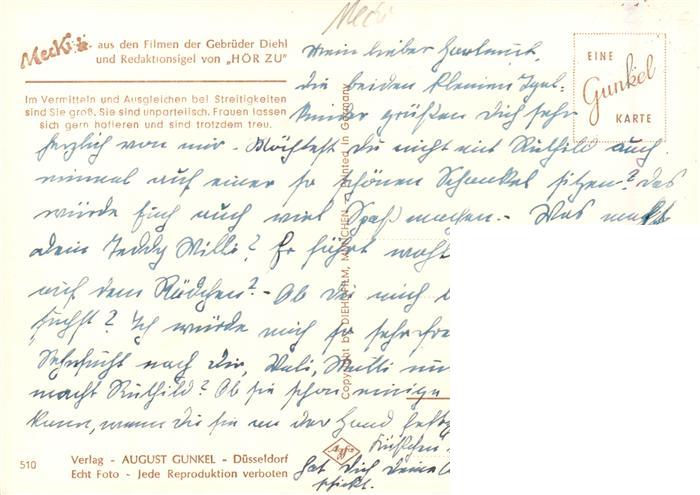 Mecki
Mecki aus den Filmen der Gebrüder Diehl
und Redaktionsigel von „HÖR ZU"
Im Vermitteln und Ausgleichen bei Streitigkeiten
sind Sie groß. Sie sind unparteiisch. Frauen lassen
sich gern hofieren und sind trotzdem treu.
EINE
Gunkel
KARTE
Mein lieber Hartmut,
die beiden kleinen Igel-
kinder grüßen Dich sehr
herzlich von mir. Möchtest Du nicht mit Ruthild auch
einmal auf einer so schönen Schaukel sitzen? Das
würde Euch auch viel Spaß machen. - Was macht
dein Teddy Willi? Er fährt wohl
auf dem Rädchen? - Ob Du mich
suchst? Ich würde mich so sehr
Sehnsucht nach Dir, Vati, Mutti
macht Ruthild? Ob sie schon einige
kann, wenn Du sie an der Hand
hat Dich Deine
schickt.
Copyright by DIEHL-FILM, MÜNCHEN - Printed in Germany
Agfa
510
Verlag - AUGUST GUNKEL - Düsseldorf
Echt Foto - Jede Reproduktion verboten